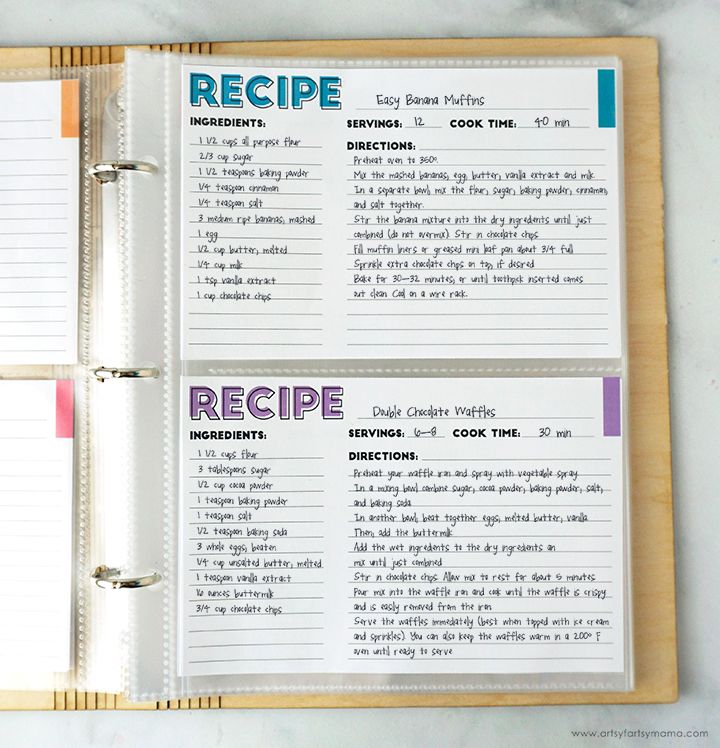 RECIPE Easy Banana Muffins
INGREDIENTS:
1 1/2 cups all purpose flour
2/3 cup sugar
1 1/2 teaspoons baking powder
1/4 teaspoon cinnamon
1/4 teaspoon salt
3 medium ripe bananas, mashed
1 egg
1/2 cup butter, melted
1/4 cup milk
1 tsp vanilla extract
1 cup chocolate chips
SERVINGS: 12 COOK TIME: 40 min
DIRECTIONS:
Preheat oven to 350°.
Mix the mashed bananas, egg, butter, vanilla extract and milk.
In a separate bowl, mix the flour, sugar, baking powder, cinnamon,
and salt together.
Stir the banana mixture into the dry ingredients until just
combined (do not overmix). Stir in chocolate chips
Fill muffin liners or greased mini loaf pan about 3/4 full
Sprinkle extra chocolate chips on top, if desired
Bake for 30-32 minutes, or until toothpick inserted comes
out clean Cool on a wire rack.
RECIPE Double Chocolate Waffles
INGREDIENTS:
1 1/2 cups flour
3 tablespoons sugar
1/2 cup cocoa powder
1 teaspoon baking powder
1 teaspoon salt
1/2 teaspoon baking soda
3 whole eggs, beaten
1/4 cup unsalted butter, melted
1 teaspoon vanilla extract
16 ounces buttermilk
3/4 cup chocolate chips
SERVINGS: 6-8 COOK TIME: 30 min
DIRECTIONS:
Preheat your waffle iron and spray with vegetable spray
In a mixing bowl combine sugar, cocoa powder, baking powder, salt,
and baking soda
In another bowl, beat together eggs, melted butter, vanilla
Then, add the buttermilk
Add the wet ingredients to the dry ingredients an
mix until just combined
Stir in chocolate chips Allow mix to rest for about 5 minutes
Pour mix into the waffle iron and cook until the waffle is crispy
and is easily removed from the iron
Serve the waffles immediately (best when topped with ice cream
and sprinkles) You can also keep the waffles warm in a 200° F
oven until ready to serve
www.artsyfartsymama.com